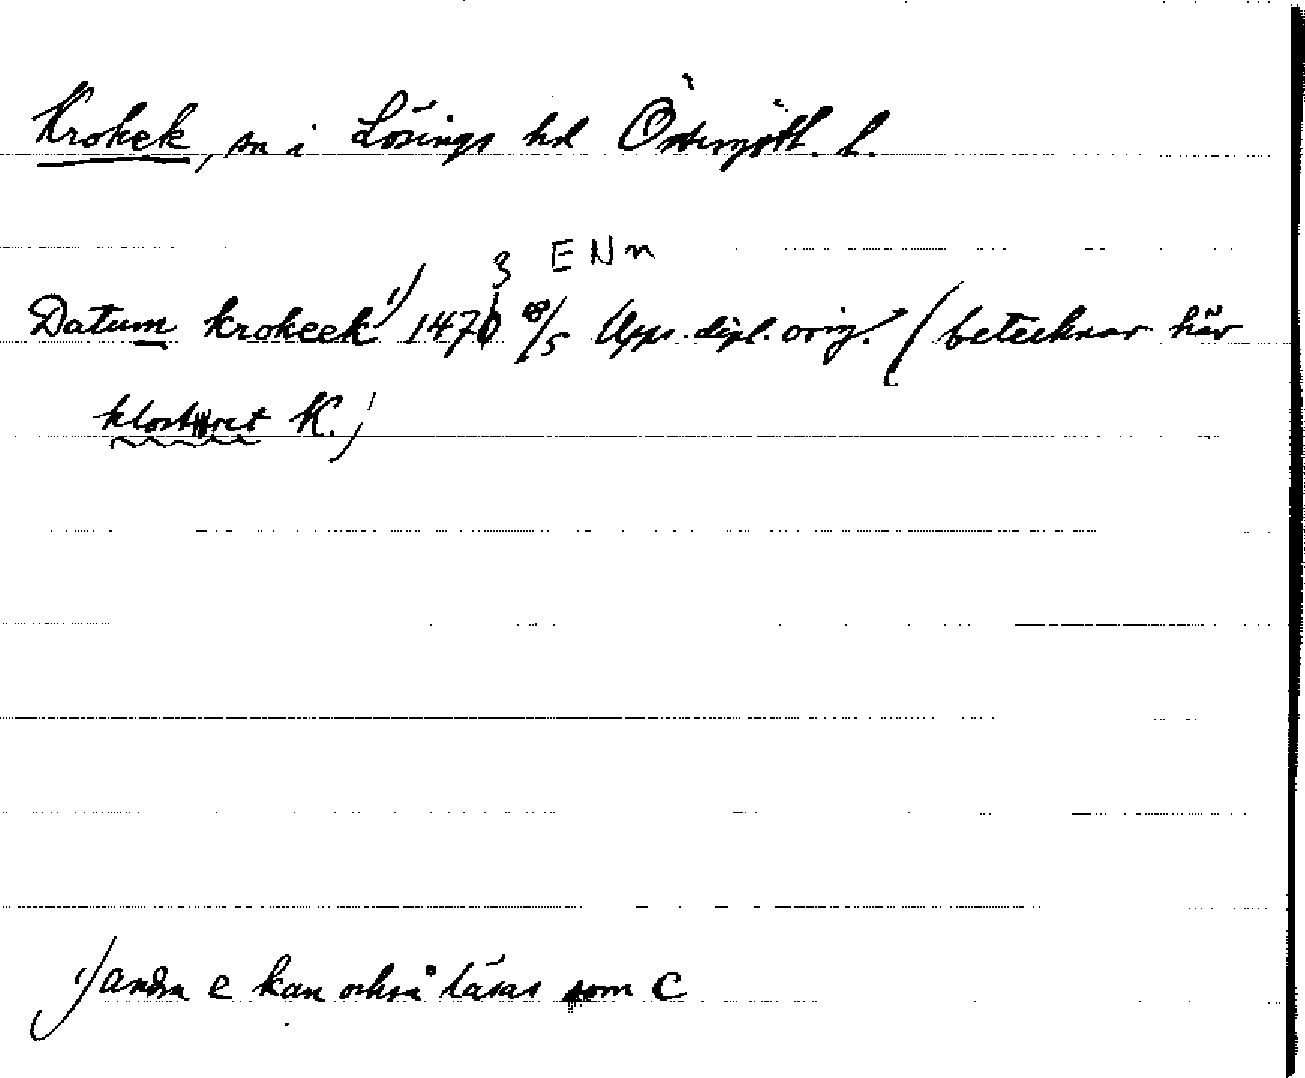 Krokek, sn i Lösings hd Östergötl. l.
3 ENn
Datum krokeek 1) 1470 /5 Upps. dipl. orig. (betecknar här
klostret K.)
1) andra e kan också läsas som c